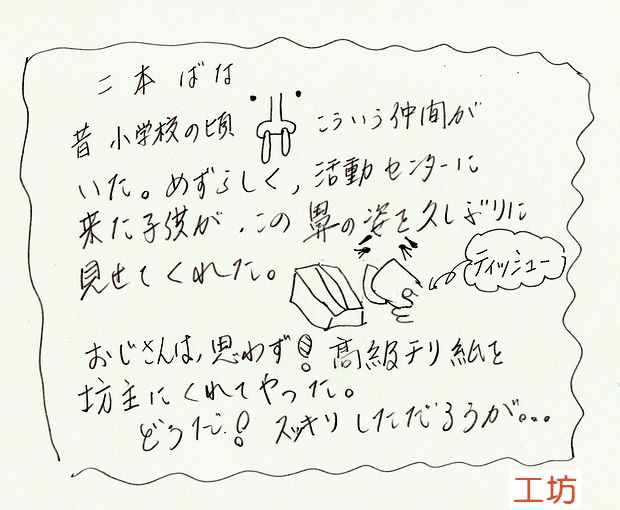 二本ばな
昔 小学校の頃 こういう仲間が
いた。めずらしく、活動センターに
来た子供が、この鼻の姿を久しぶりに
見せてくれた。
ティッシュー
おじさんは、思わず!高級チリ紙を
坊主にくれてやった。
どうだ!スッキリしただろうが...
工坊